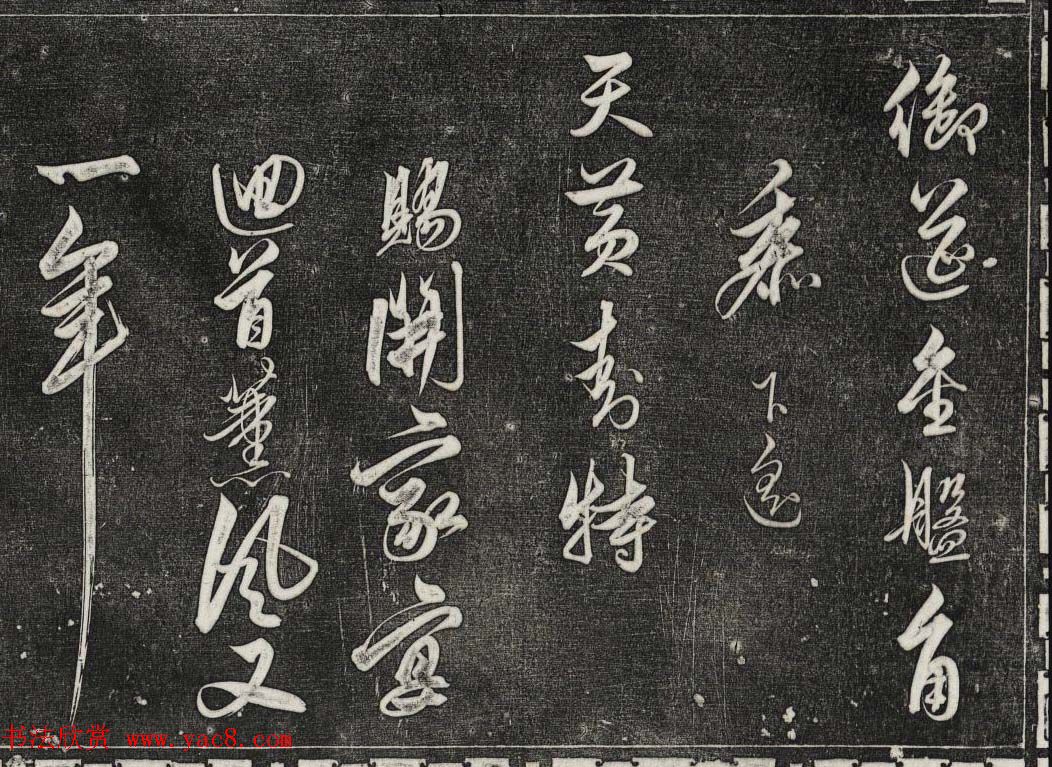 御筵金盤角
黍下遙
天黃封特
賜開家宴
迴首薰風又
一年
书法欣赏 www.yac8.com